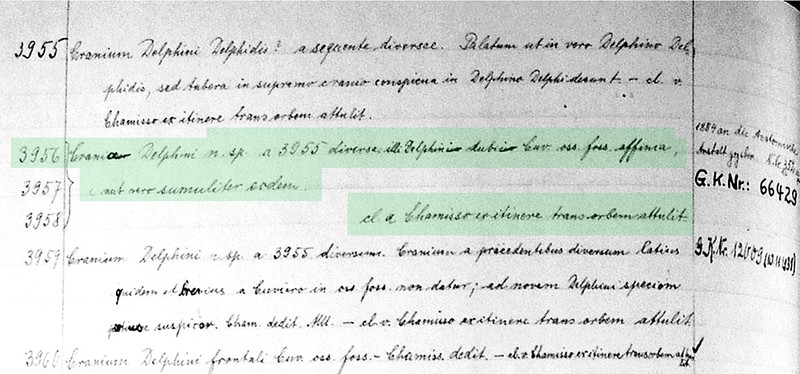 3955 Cranium Delphini Delphidis? a sequente diversae. Palatum ut in vero Delphino Del-
phidis, sed tubera in supremo cranio conspicua in Delphino Delphi desunt – cl. v.
Chamisso ex itinere trans orbem attulit.
3956 Crania Delphini n. sp. a 3955 diversa illi Delphini dubii Cuv. oss. foss. affinia,
3957 aut vero sumuliter eodem.
3958 cl. a Chamisso ex itinere trans orbem attulit
3959 Cranium Delphini n. sp. a 3955 diversum. Cranium a praecedentibus diversum latius
quidem et brevius a Cuviero in oss. foss. non datur; ad novam Delphini speciem
suspicor. Cham. dedit. – cl. v. Chamisso ex itinere trans orbem attulit
3960 Cranium Delphini frontali Cuv. oss. foss. – Chamiss. dedit. – cl. v. Chamisso ex itinere trans orbem
1884 an die
G.K.Nr.: 66429